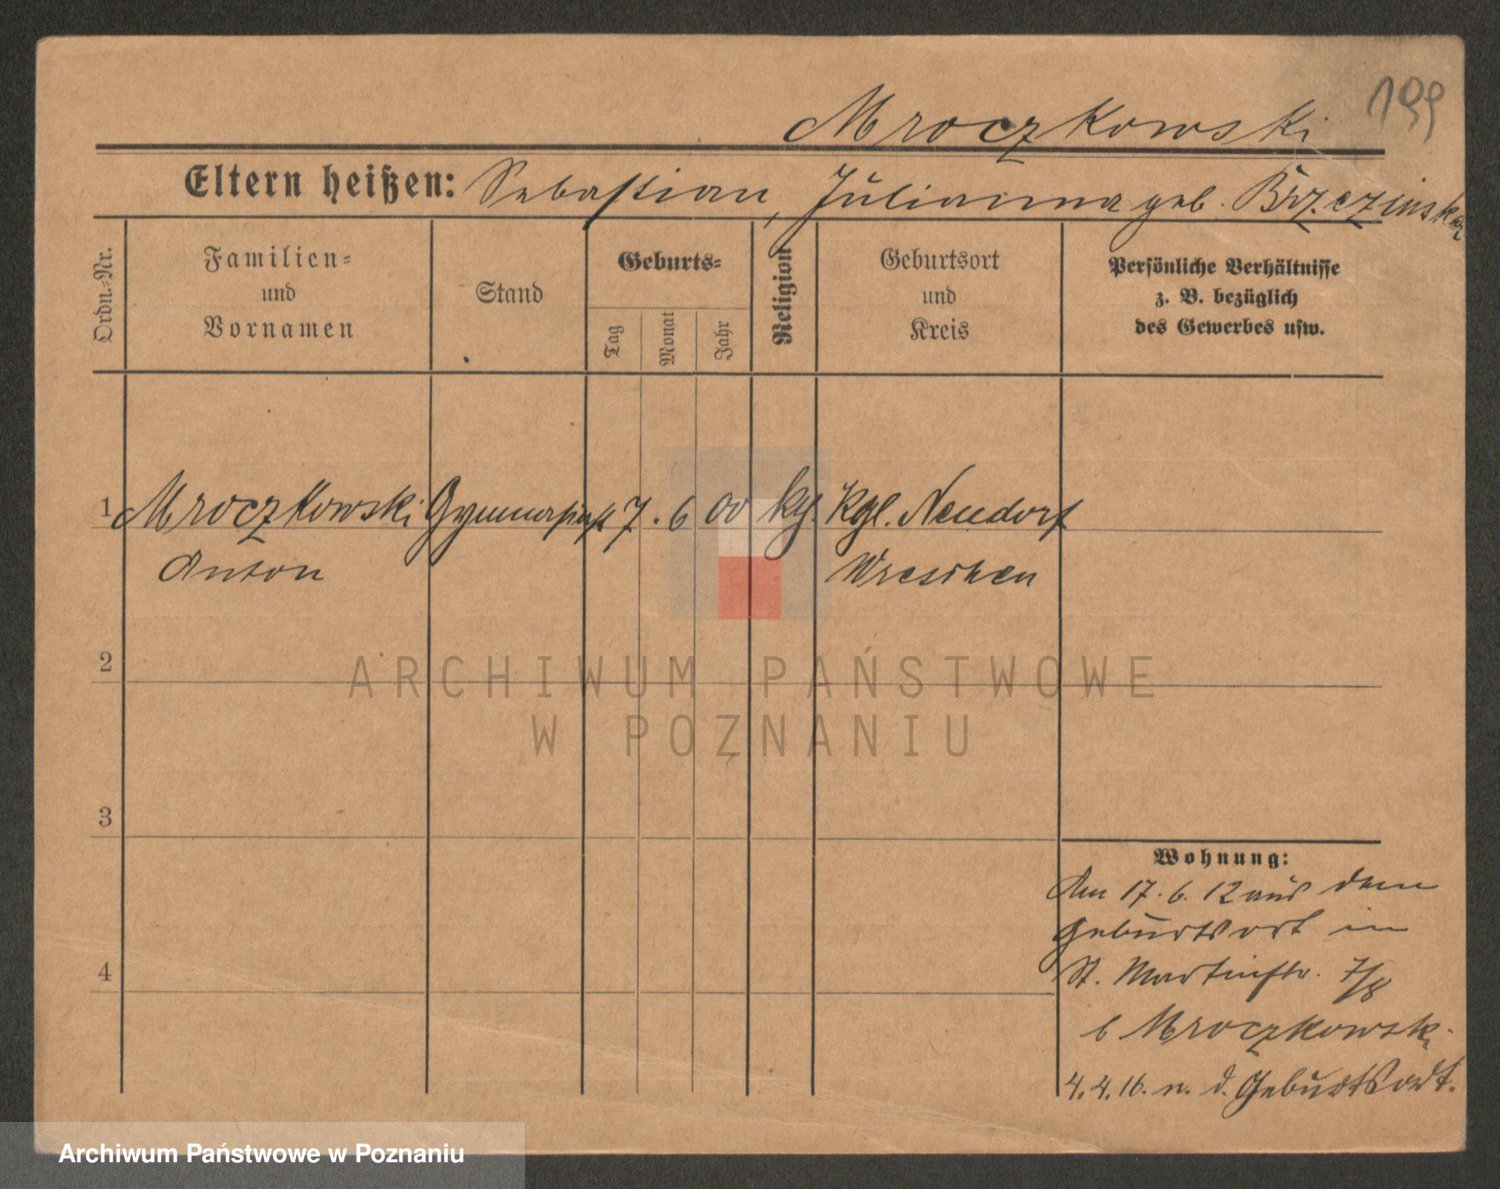 199
Mroczkowski
Eltern heißen: Sebastian, Julianna geb. Brzezinska
Ordn.-Nr.
Familien-
und
Vornamen
Stand
Geburts-
Tag
Monat
Jahr
Religion
Geburtsort
und
Kreis
Persönliche Verhältnisse
z. B. bezüglich
des Gewerbes usw.
1 Mroczkowski Gymnasiast 7. 6 00 kg. Kgl. Neudorf
Anton Wreschen
2
ARCHIWUM PAŃSTWOWE
W POZNANIU
3
Wohnung:
Am 17. 6. 12 aus dem
Geburtsort in
St. Martinstr. 7/8
b Mroczkowski
4
4. 4. 16. n. d. Geburtsort.
Archiwum Państwowe w Poznaniu